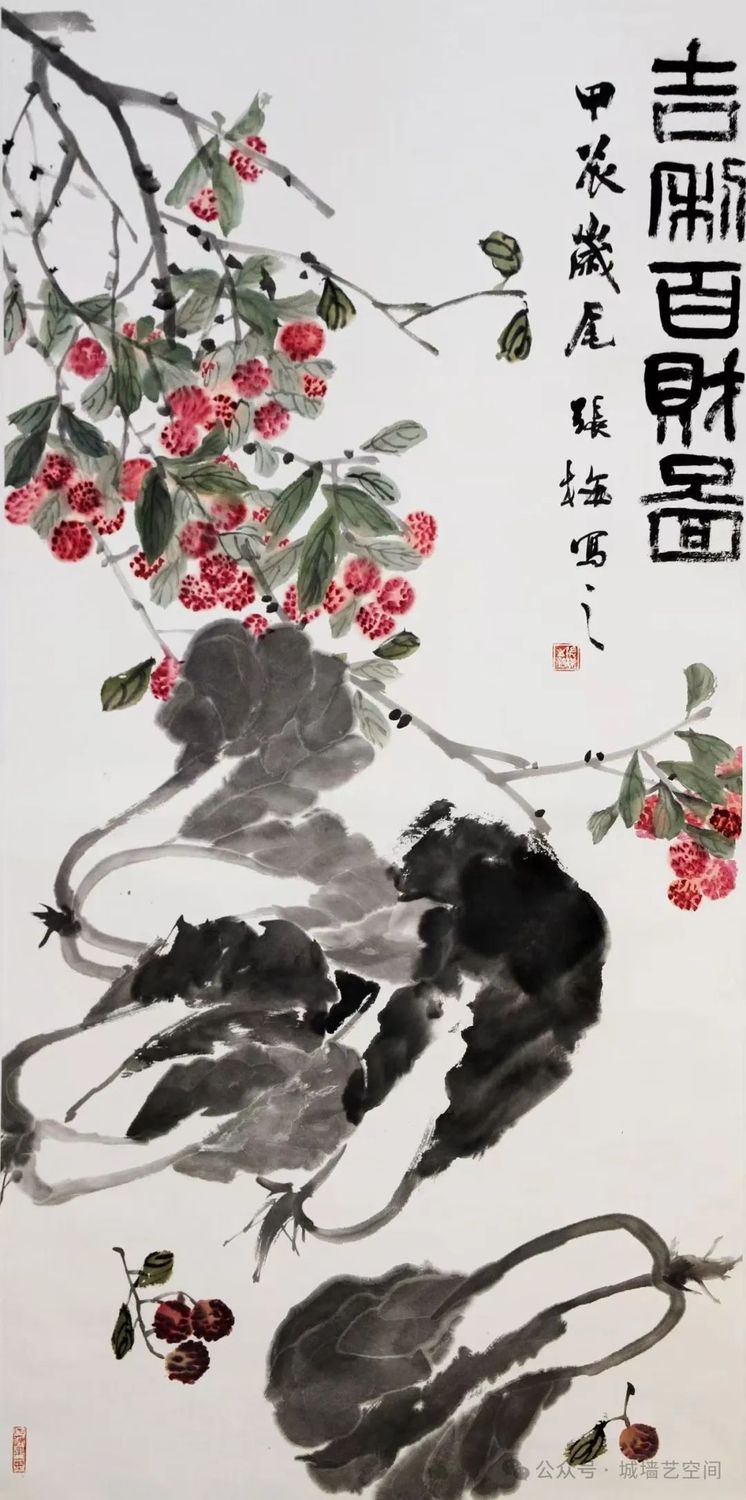 吉利百財圖
甲辰歲尾 張梅寫之
公众号·城墙艺空间